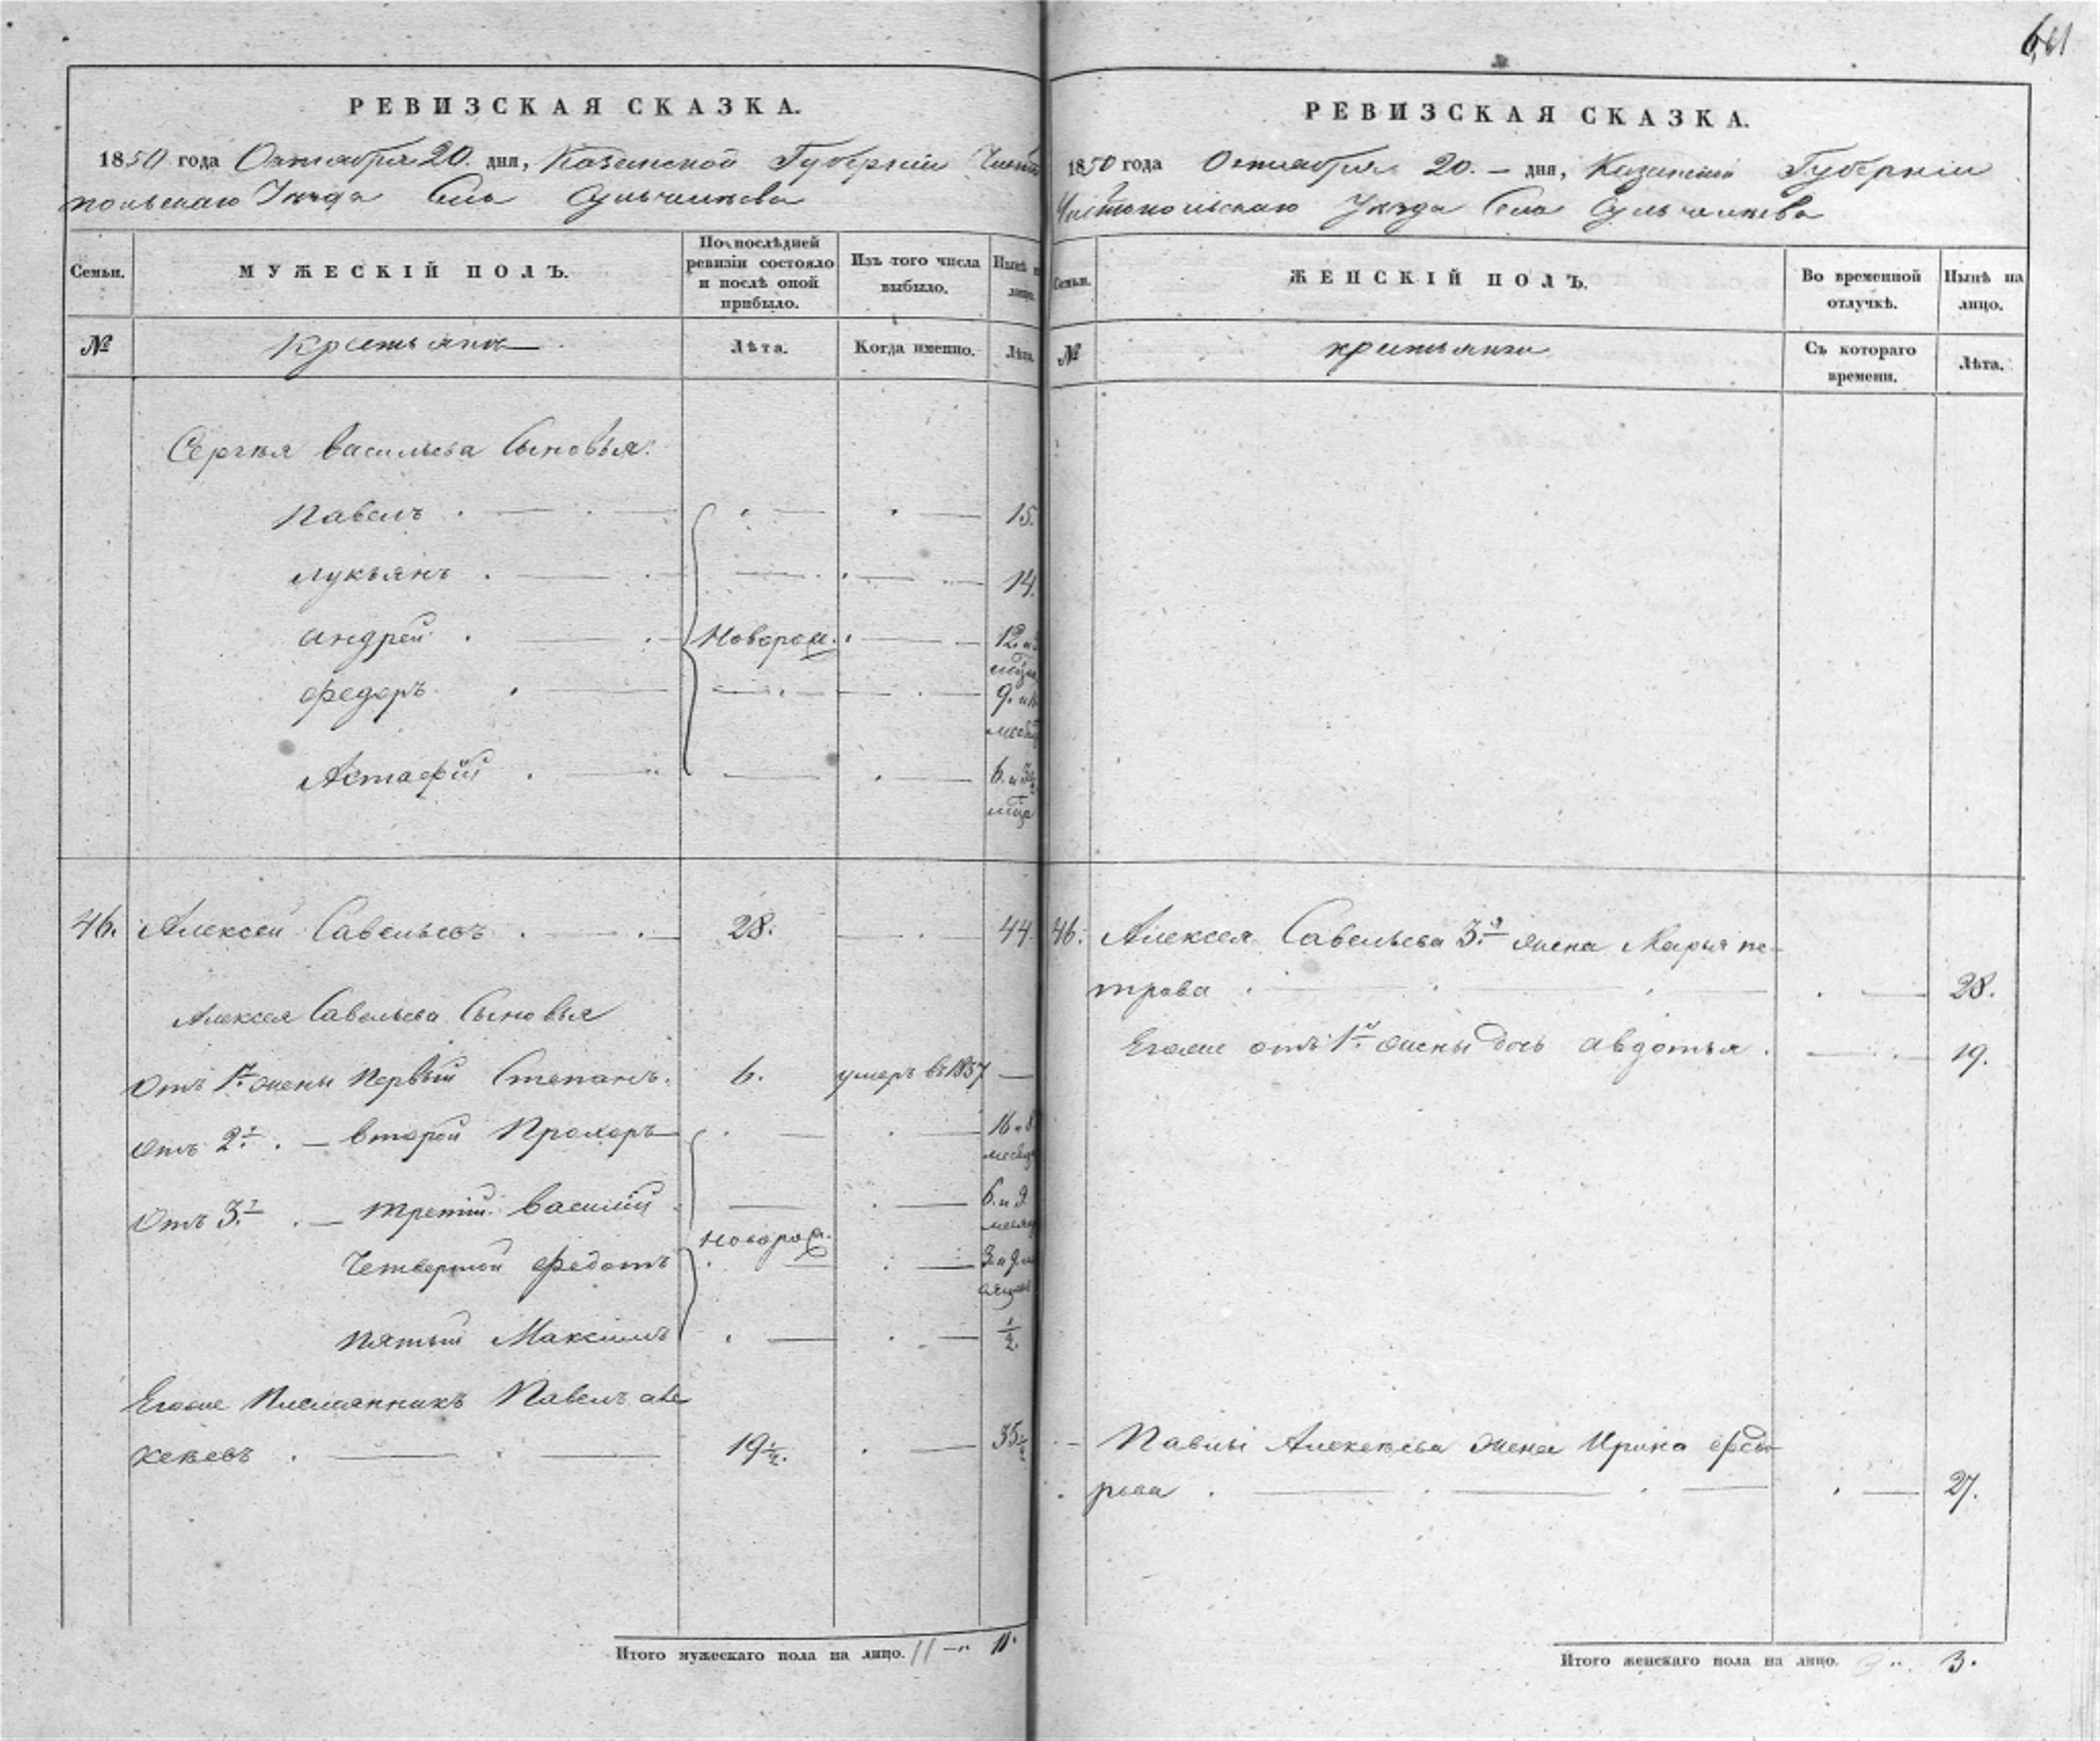 РЕВИЗСКАЯ СКАЗКА.
1850 года Октября 20. дня, Казанской Губернiи Чисто
польскаго Уѣзда Села Сульчилѣева
Семьи.
МУЖЕСКIЙ ПОЛЪ.
По послѣдней
ревизiи состояло
и послѣ оной
прибыло.
Изъ того числа
выбыло.
Нынѣ н
лицо.
№
Крестьяне
Лѣта.
Когда именно.
Лѣта.
Сергѣя Васильева Сыновья:
Павелъ 15.
Лукьянъ 14.
Андрей Новорож. 12. и
Федоръ 9. и
Астафiй 6. и
46. Алексей Савельевъ 28. 44
Алексея Савельева Сыновья
Отъ 1й жены Первый Степанъ. 6. умеръ въ 1837
Отъ 2й второй Прохоръ 16 и 8
месяце
Отъ 3й третiй Василiй 6. и 9
Новорож.
Четвертой Федотъ 3. и 9 м
Пятый Максимъ 1/2.
Егоже Племянникъ Павелъ Але
ксѣевъ 19 1/2. 35 1/2
Итого мужескаго пола на лицо. 11 11.
61
РЕВИЗСКАЯ СКАЗКА.
1850 года Октября 20. дня, Казанской Губернiи
Чистопольскаго Уѣзда Села Сульчилѣева
Семьи.
ЖЕНСКIЙ ПОЛЪ.
Во временной
отлучкѣ.
Нынѣ на
лицо.
№
крестьянки
Съ котораго
времени.
Лѣта.
46. Алексея Савельева 3.я жена Марья пе-
трова 28.
Егоже отъ 1й жены дочь Авдотья. 19.
Павла Алексѣева жена Ирина Федо-
рова 27.
Итого женскаго пола на лицо. 3.